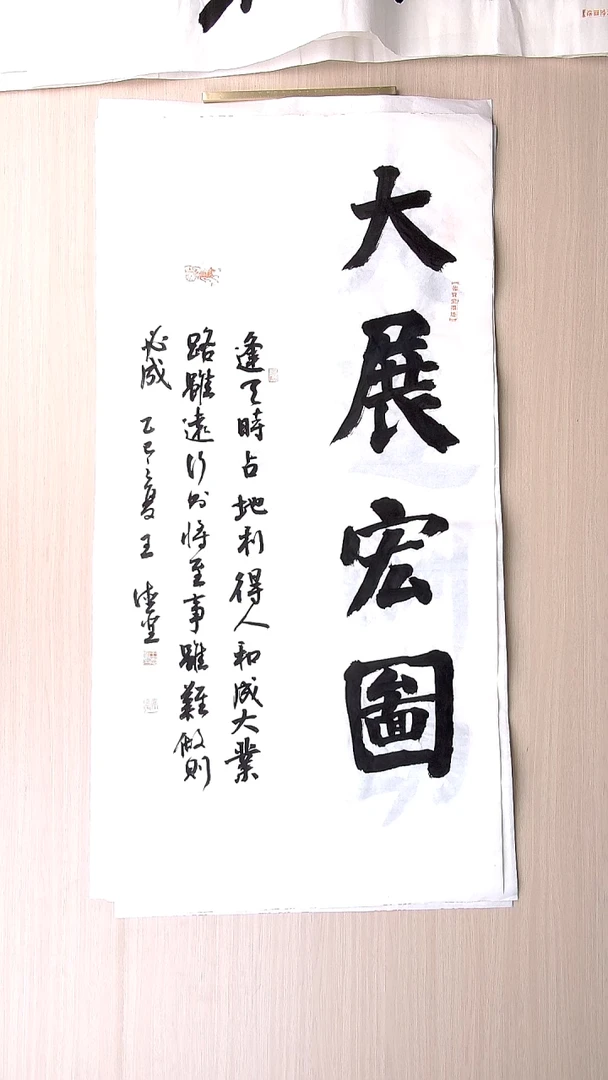 大展宏圖
逢天時占地利得人和成大業
路雖遠行則將至事雖難做則
必成 乙巳之夏 王